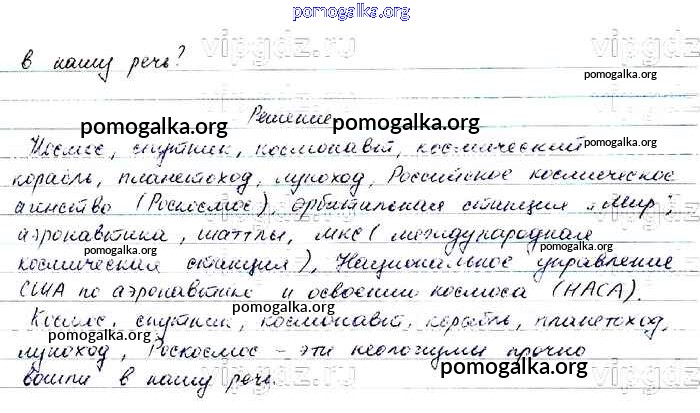 pomogalka.org
в нашу речь?
pomogalka.org
Решение
pomogalka.org
Космос, спутник, космонавт, космический
pomogalka.org
корабль, планетоход, луноход, Российское космическое
агенство (Роскосмос), орбитальная станция „Мир",
аэронавтика, шаттлы, МКС (международная
космическая станция), Национальное управление
США по аэронавтике и освоении космоса (НАСА).
Космос, спутник, космонавт, корабль, планетоход,
луноход, Роскосмос – эти неологизмы прочно
вошли в нашу речь.
pomogalka.org
vipgdz.ru